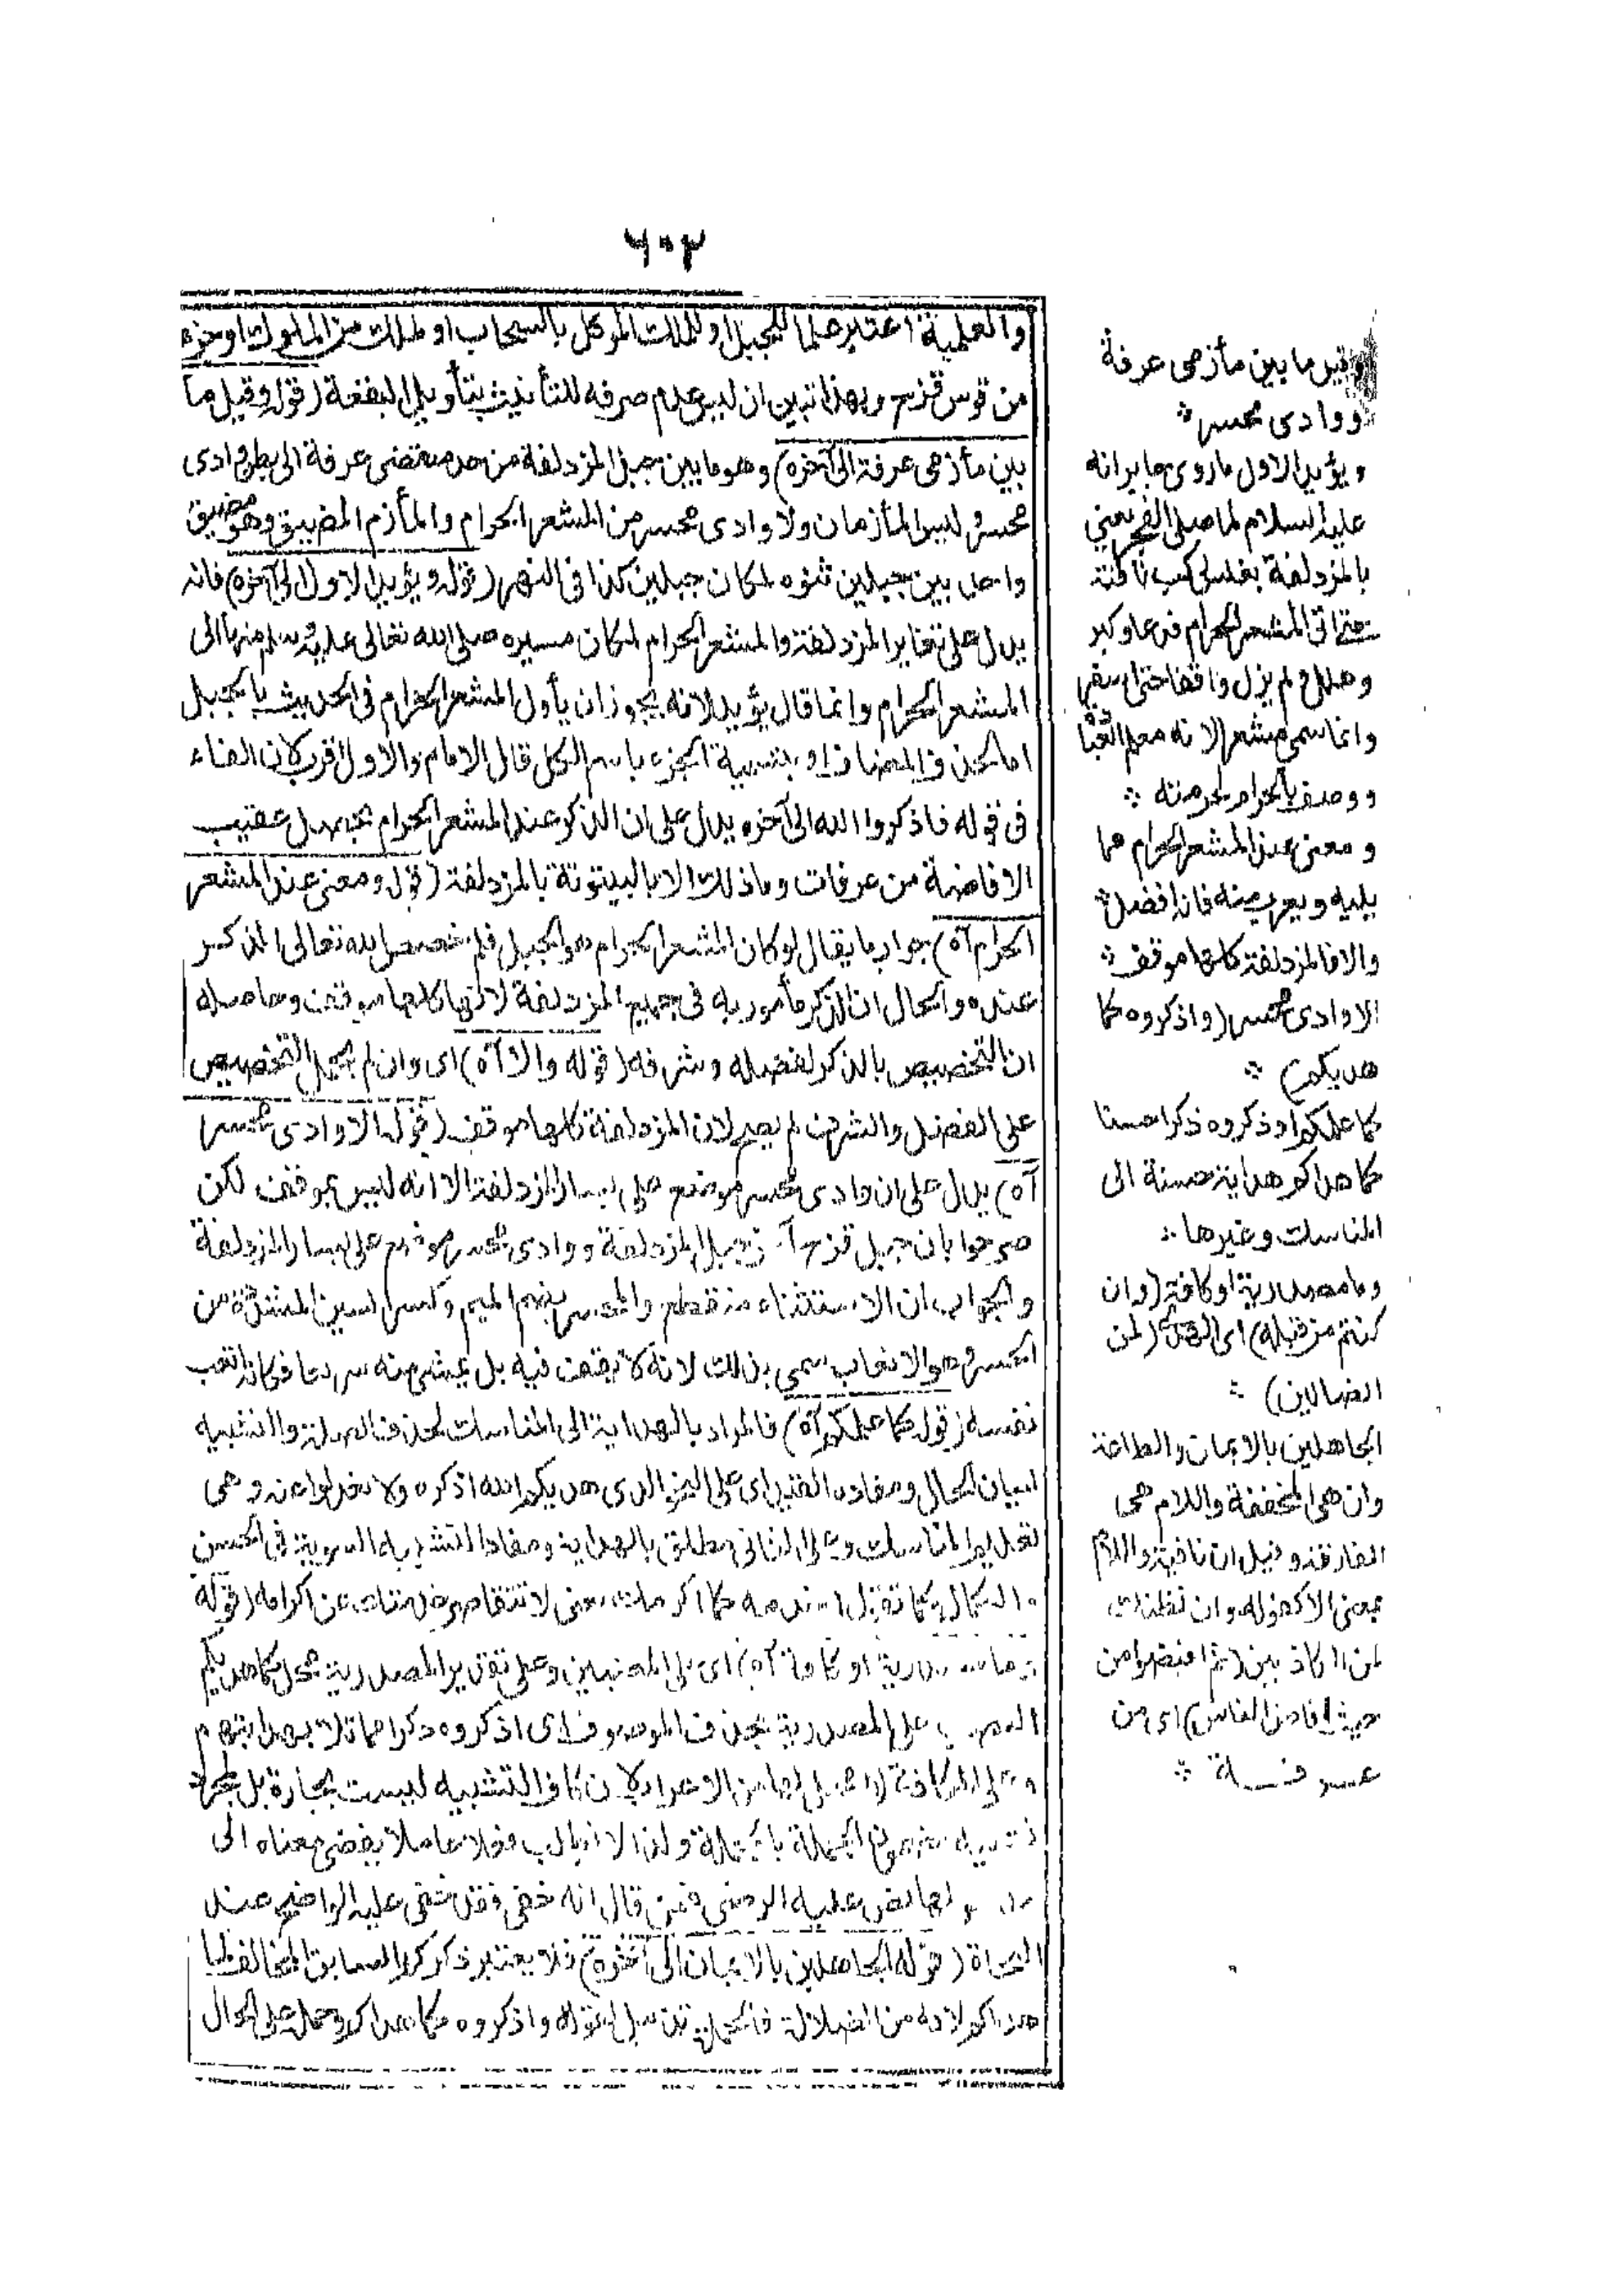 ٦٠٢
والعلمية اعتبر علما للجبل او للملك الموكل بالسحاب او لملك من الملوك او جزء
من قوس قزح وبهذا تبين ان ليس عدم صرفه للتأنيث بتأويل البقعة (قوله وقيل ما
بين مأزمى عرفة الى آخره) وهو ما بين جبل المزدلفة من حد مفضى عرفة الى بطن وادى
محسر وليس المأزمان ولا وادى محسر من المشعر الحرام والمأزم المضيق وهو مضيق
واحد بين جبلين ثنوه لمكان جبلين كذا فى النهر (قوله ويؤيد الاول الى آخره) فانه
يدل على تغاير المزدلفة والمشعر الحرام لمكان مسيره صلى الله تعالى عليه وسلم منها الى
المشعر الحرام وانما قال يؤيد لانه يجوز ان يأول المشعر الحرام فى الحديث بالجبل
اما بحذف المضاف او بتسمية الجزء باسم الكل قال الامام والاول اقرب لان الفاء
فى قوله فاذكروا الله الى آخره يدل على ان الذكر عند المشعر الحرام يحصل عقيب
الافاضة من عرفات وما ذلك الا بالبيتوتة بالمزدلفة (قوله ومعنى عند المشعر
الحرام آه) جواب ما يقال لو كان المشعر الحرام هو الجبل فلم خصص الله تعالى الذكر
عنده والحال ان الذكر مأمور به فى جميع المزدلفة لانها كلها موقف وحاصله
ان التخصيص بالذكر لفضله وشرفه (قوله والا آه) اى وان لم يحمل التخصيص
على الفضل والشرف لم يصح لان المزدلفة كلها موقف (قوله الا وادى محسر
آه) يدل على ان وادى محسر موضع على يسار المزدلفة الا انه ليس بموقف لكن
صرحوا بان جبل قزح آخر جبل المزدلفة ووادى محسر موضع على يسار المزدلفة
والجواب ان الاستثناء منقطع والمحسر بضم الميم وكسر السين المشددة من
التحسر وهو الاتعاب سمى بذلك لانه لا يقف فيه بل يمشى منه سريعا فكانه اتعب
نفسه (قوله كما علمكم آه) فالمراد بالهداية الى المناسك بحذف الصلة والتشبيه
لبيان الحال ومفاده التقييد اى على النحو الذى هديكم الله اذكروه ولا تعدلوا عنه وهى
المناسك وعلى الثانى مطلق بالهداية ومفاد التشبيه التسوية فى الحسن
والكمال كما تقول اخدمه كما اكرمك يعنى لا تتقاصر خدمتك عن اكرامه (قوله
وما مصدرية او كافة آه) اى على المعنيين وعلى تقدير المصدرية محل كما هديكم
النصب على المصدرية بحذف الموصوف اى اذكروه ذكرا مماثلا بهدايتهم
وعلى الكافة لا محل لها من الاعراب لان كاف التشبيه ليست بجارة بل لمجرد
تشبيه مضمون الجملة بالجملة ولذا لا تطلب عاملا يفضى معناه الى
عليه الرضى فمن قال انه خفى فقد خفى عليه الواضح عند
النحاة (قوله الجاهلين بالايمان الى آخره) فلا يعتبر ذكركم السابق المخالف لما
هداكم لانه من الضلالة فالجملة تذييل لقوله واذكروه كما هداكم وحمل على الحال
وقيل ما بين مأزمى عرفة
ووادى محسر
ويؤيد الاول ما روى جابر انه
عليه السلام لما صلى الفجر يعنى
بالمزدلفة بغلس ركب ناقته
حتى اتى المشعر الحرام فدعا وكبر
وهلل ولم يزل واقفا حتى اسفر
وانما سمى مشعرا لانه معلم العبادة
ووصف بالحرام لحرمته
ومعنى عند المشعر الحرام مما
يليه ويقرب منه فانه افضل
والا فالمزدلفة كلها موقف
الا وادى محسر (واذكروه كما
هديكم)
كما علمكم او اذكروه ذكرا حسنا
كما هداكم هداية حسنة الى
المناسك وغيرها
وما مصدرية او كافة (وان
كنتم من قبله) اى الهدى (لمن
الضالين)
الجاهلين بالايمان والطاعة
وان هى المخففة واللام هى
الفارقة وقيل ان نافية واللام
بمعنى الا كقوله وان نظنك
لمن الكاذبين (ثم افيضوا من
حيث افاض الناس) اى من
عرفة